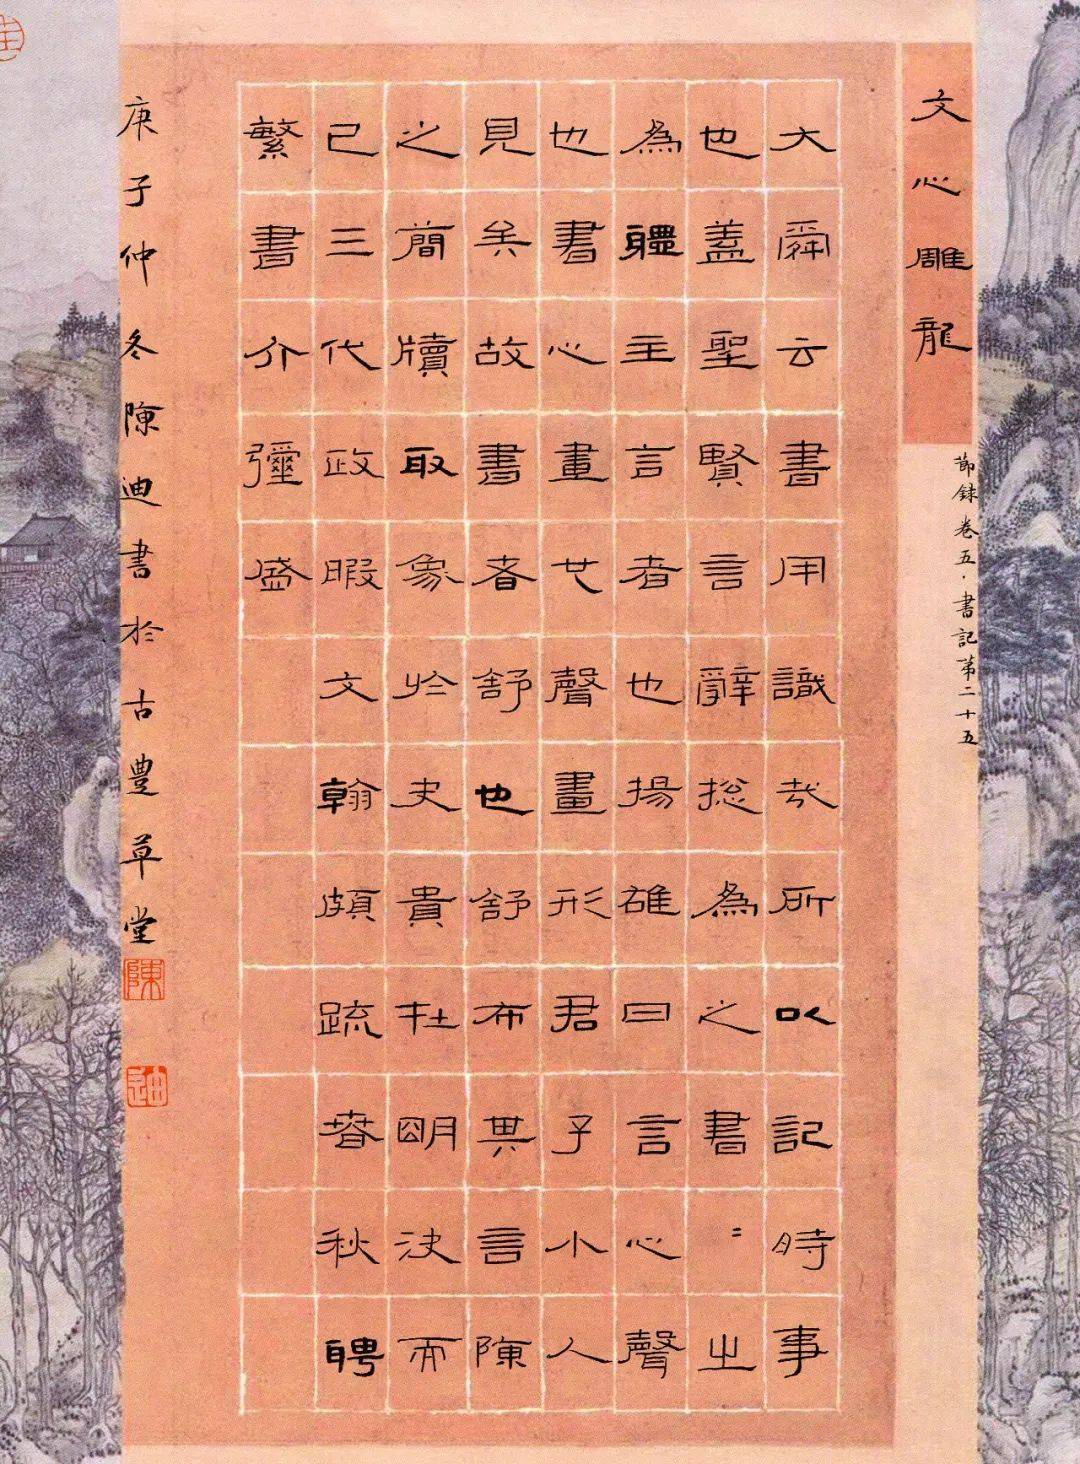 文心雕龍
節録卷五·書記第二十五
大舜云書用識哉所以記時事
也蓋聖賢言辭捴為之書〻之
為體主言者也揚雄曰言心聲
也書心畫也聲畫形君子小人
見矣故書者舒也舒布其言陳
之簡牘取象於史貴在明決而
已三代政暇文翰頗疏春秋聘
繁書介彌盛
庚子仲冬陳迪書於古豐草堂
陳
迪